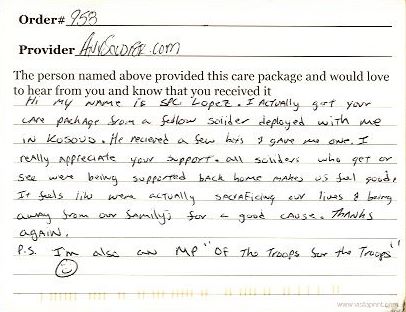 Order# 953
Provider AnySoldier.com
The person named above provided this care package and would love
to hear from you and know that you received it
Hi my name is SPC Lopez. I actually got your
care package from a fellow solider deployed with me
in Kosovo. He recieved a few boxs & gave me one. I
really appreciate your support. All soliders who get or
see were being supported back home makes us feel good.
It feels like were actually sacraficing our lives & being
away from our family's for a good cause. Thanks
again.
P.S. I'm also an MP "Of the Troops for the Troops"
www.vistaprint.com